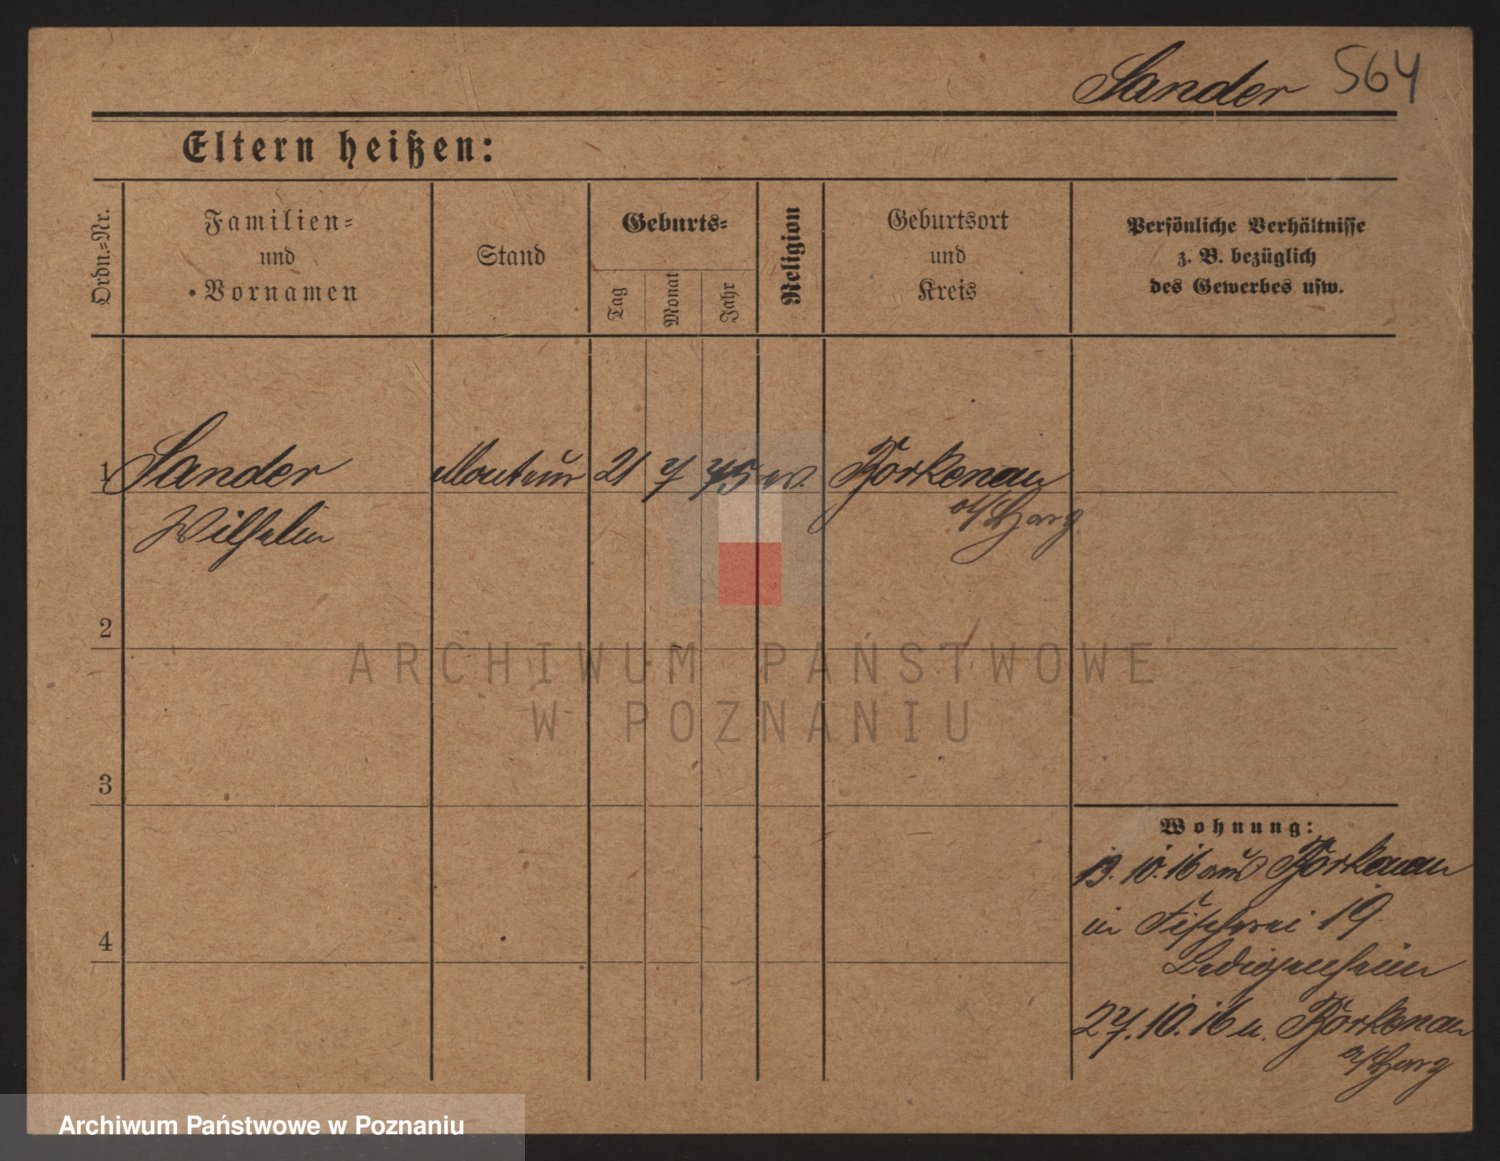 Sander 564
Eltern heißen:
Ordn.-Nr.
Familien-
und
Vornamen
Stand
Geburts-
Tag
Monat
Jahr
Religion
Geburtsort
und
Kreis
Persönliche Verhältnisse
z. B. bezüglich
des Gewerbes usw.
1 Sander Monteur 21 7 75 ev. Borkenau
Wilhelm
a/Harz
2
3
4
Wohnung:
13. 10. 16 aus Borkenau
in Fischerei 19
Ledigenheim
27. 10. 16 n. Borkenau
a/Harz
ARCHIWUM PAŃSTWOWE
W POZNANIU
Archiwum Państwowe w Poznaniu